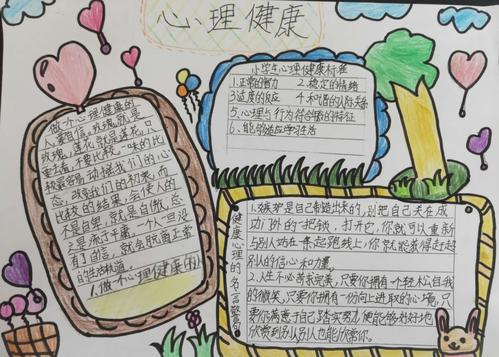 心理健康
做个心理健康的
人要自信,玫瑰就是
玫瑰,莲花就是莲花,只
要去看,不要比较。一味的比
较最容易动摇我们的心
态,改变我们的初衷,而
比较的结果,会使人的
不是自卑,就是自傲,总
之是流于平庸。一个人一旦没
有了自信,就会脱离正常
的生活轨道。
1、做个心理健康的人
小学生心理健康标准
1、正常的智力 2、稳定的情绪
3适度的反应 4和谐的人际关系
5、心理与行为符合年龄的特征
6、能够适应学习生活
健康心理的名言警句
1、嫉妒是自己制造出来的,别把自己关在成
功门外的一把锁,打开它,你就可以重新
与别人站在一条起跑线上,你就能获得赶超
别人的信心和力量。
2、人生不必苛求完美,只要你拥有一个轻松自我
的微笑,只要你拥有一份向上进取的心境,只
要你满意于自己踏实努力,便能够很好地
欣赏别人,别人也能欣赏你。